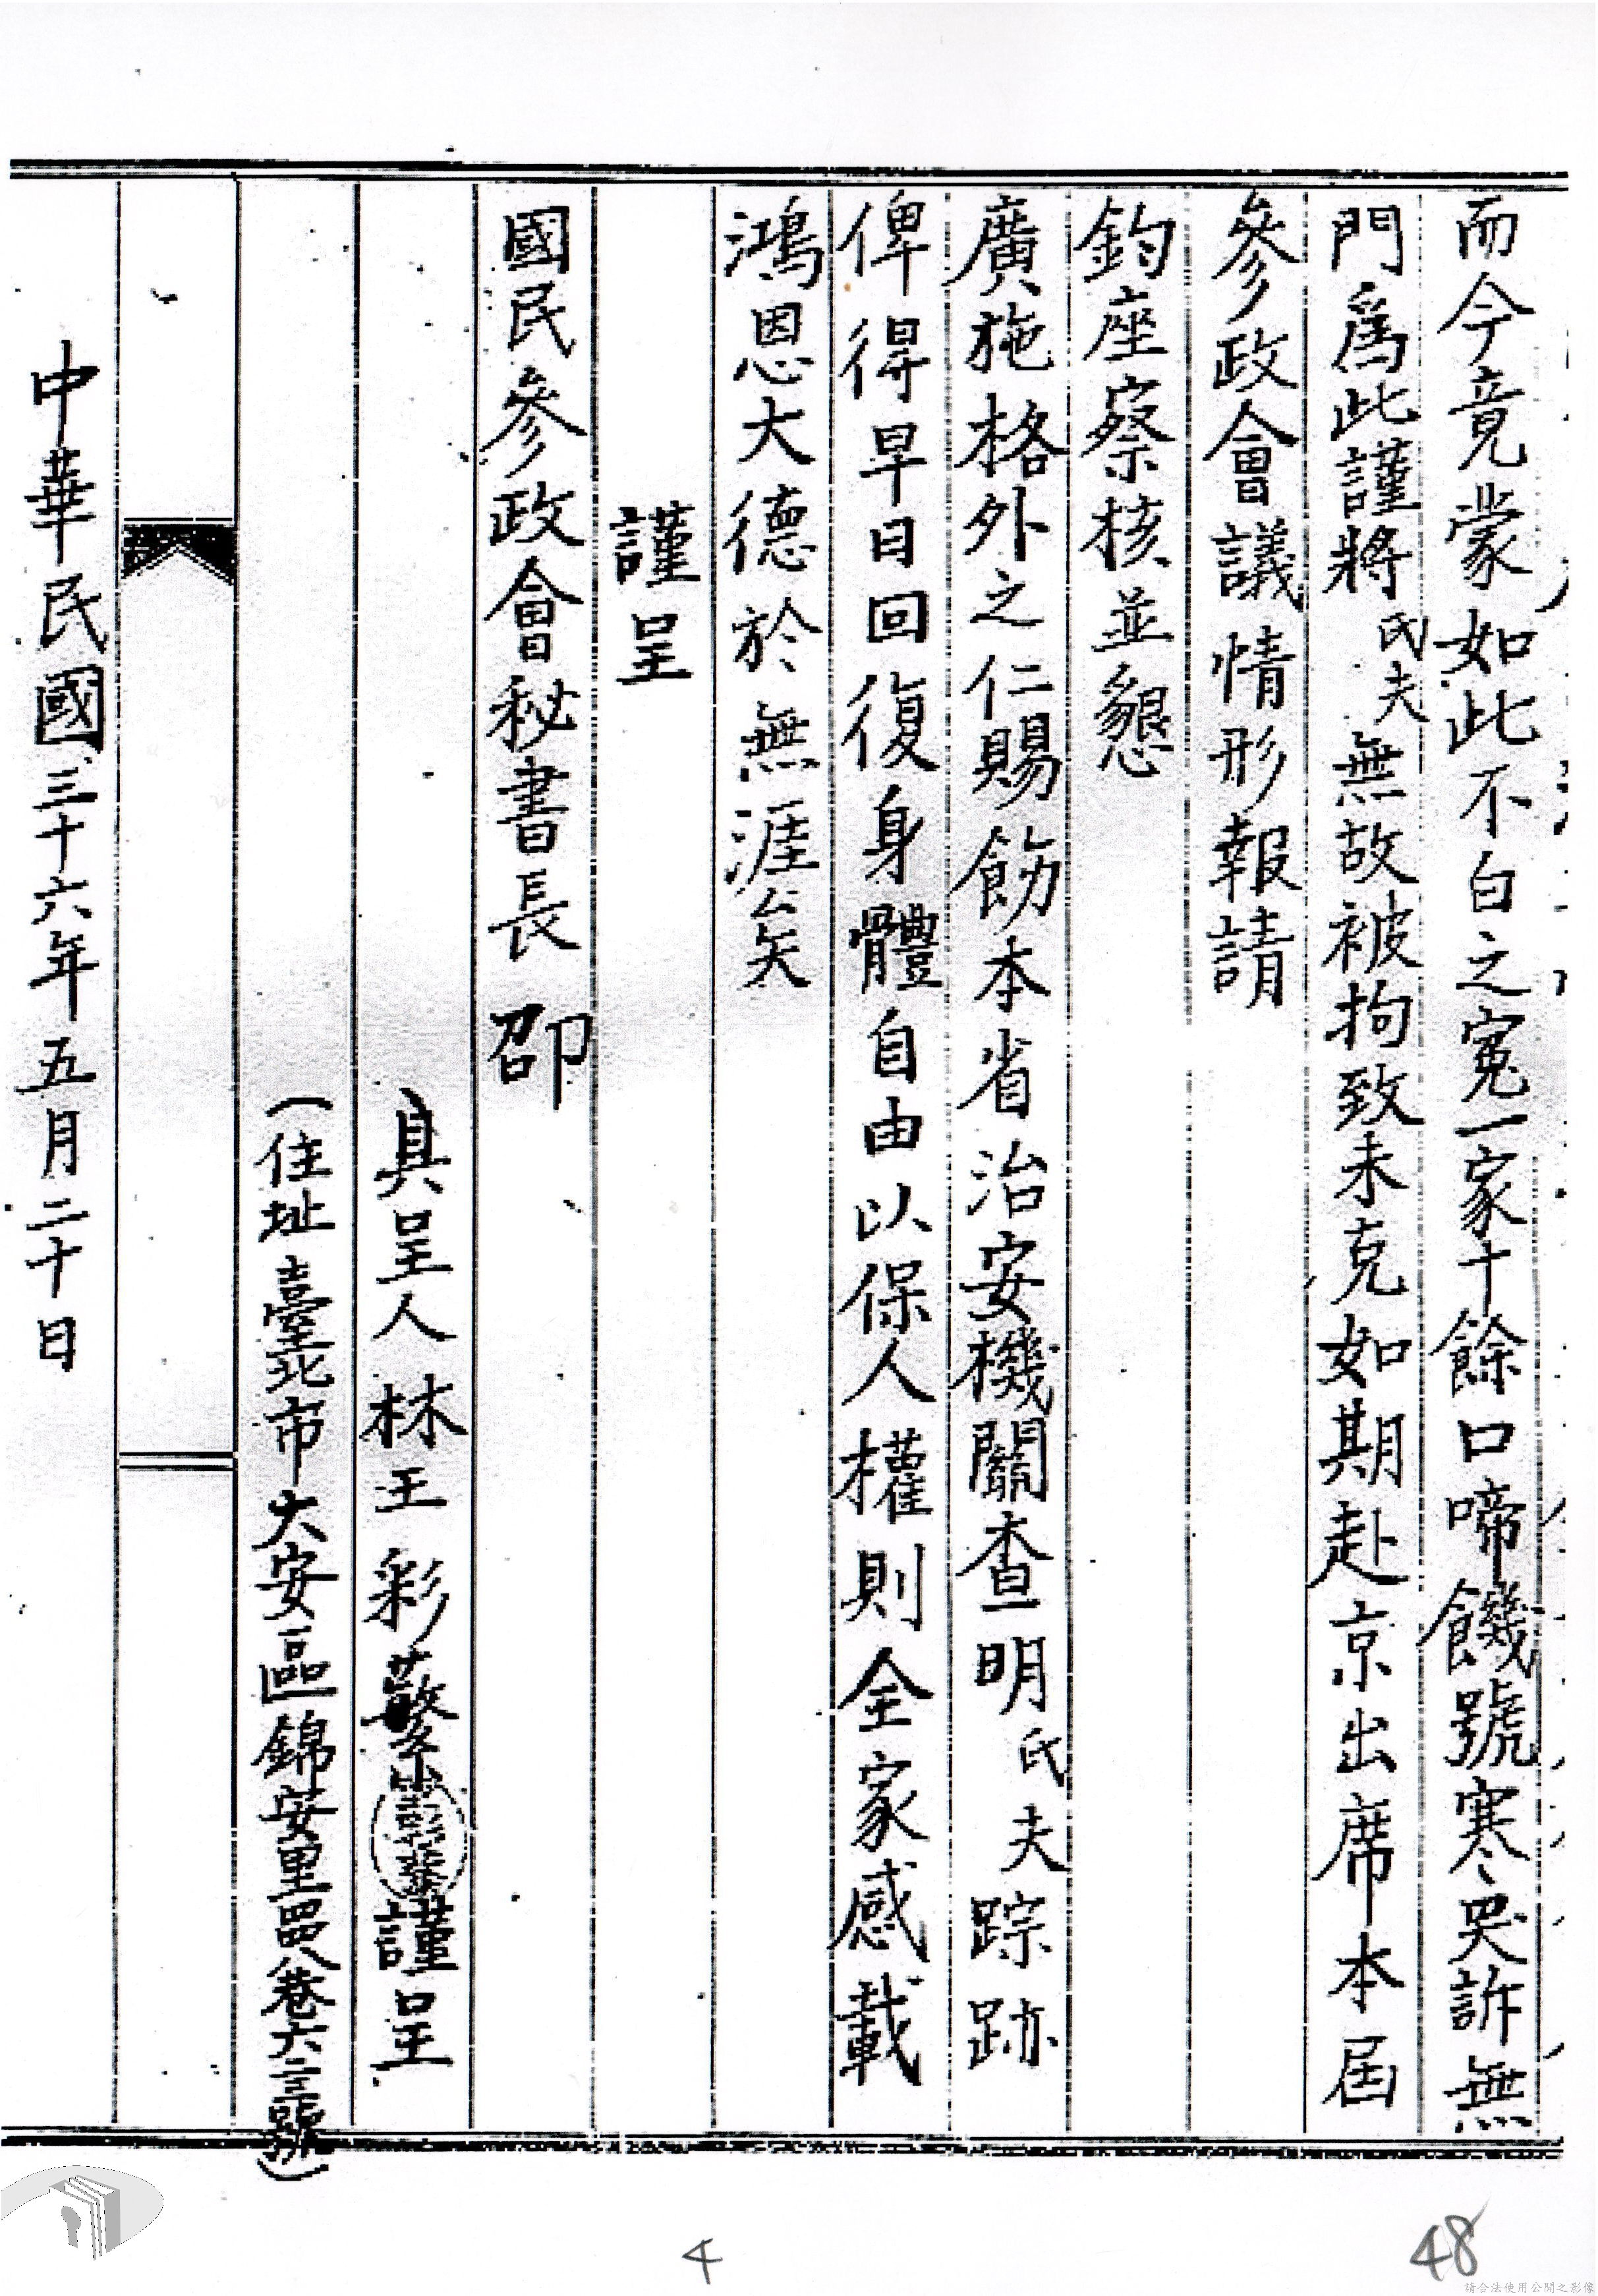 而今竟蒙如此不白之冤一家十餘口啼饑號寒哭訴無
門爲此謹將氏夫無故被拘致未克如期赴京出席本屆
參政會議情形報請
鈞座察核並懇
廣施格外之仁賜飭本省治安機關查明氏夫踪跡
俾得早日回復身體自由以保人權則全家感載
鴻恩大德於無涯矣
謹呈
國民參政會秘書長 邵
具呈人林王彩蘩謹呈
(住址臺北市大安區錦安里四八巷六三號)
中華民國三十六年五月二十日
4
48
請合法使用公開之影像